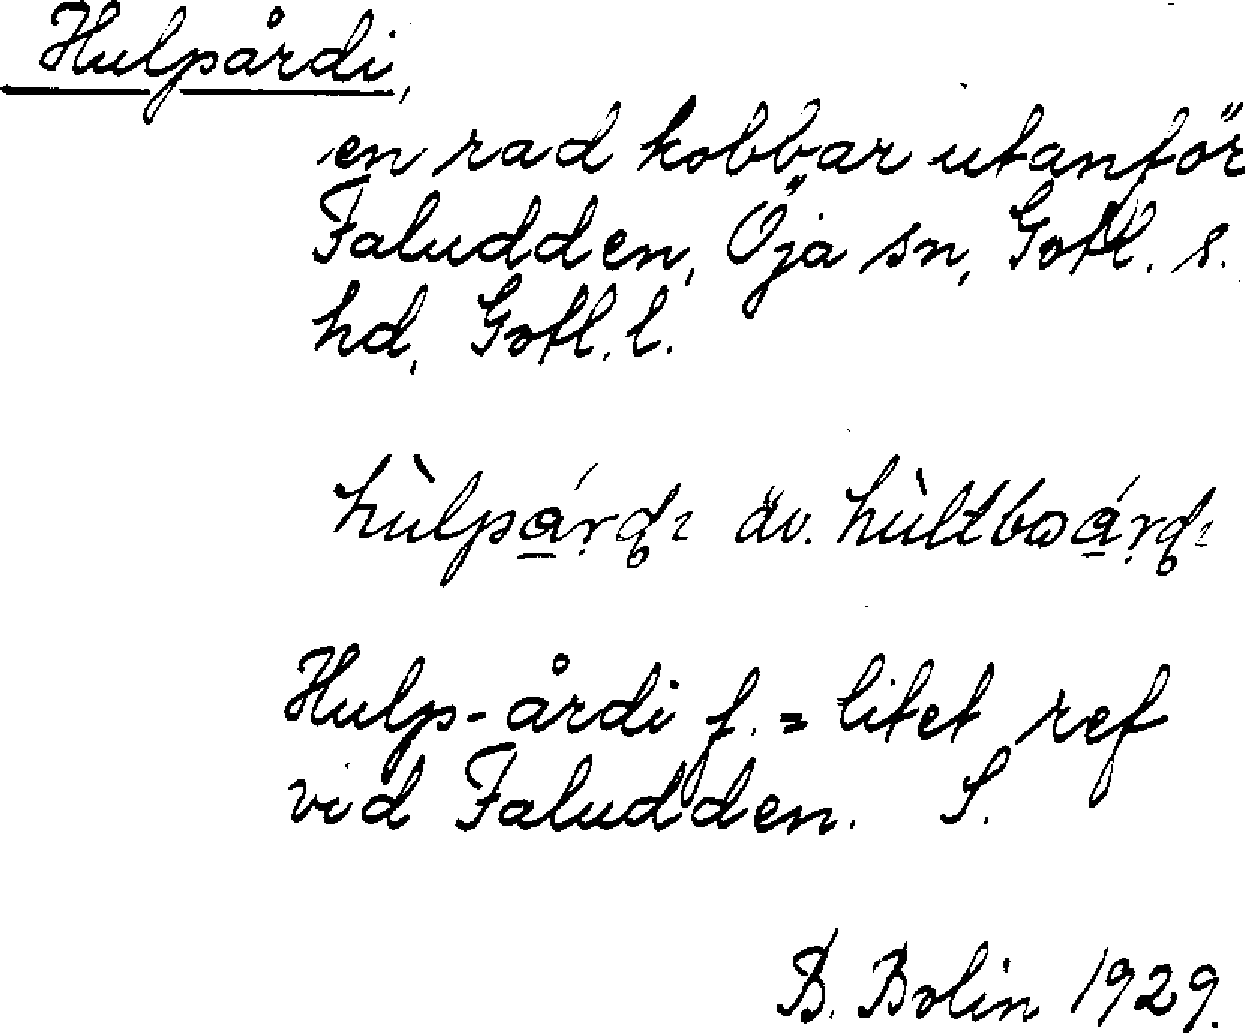 Hulpårdi,
en rad kobbar utanför
Faludden, Öja sn, Gotl. s.
hd, Gotl. l.
äv.
Hulp-årdi f. = litet ref
vid Faludden. S.
B. Bolin 1929.